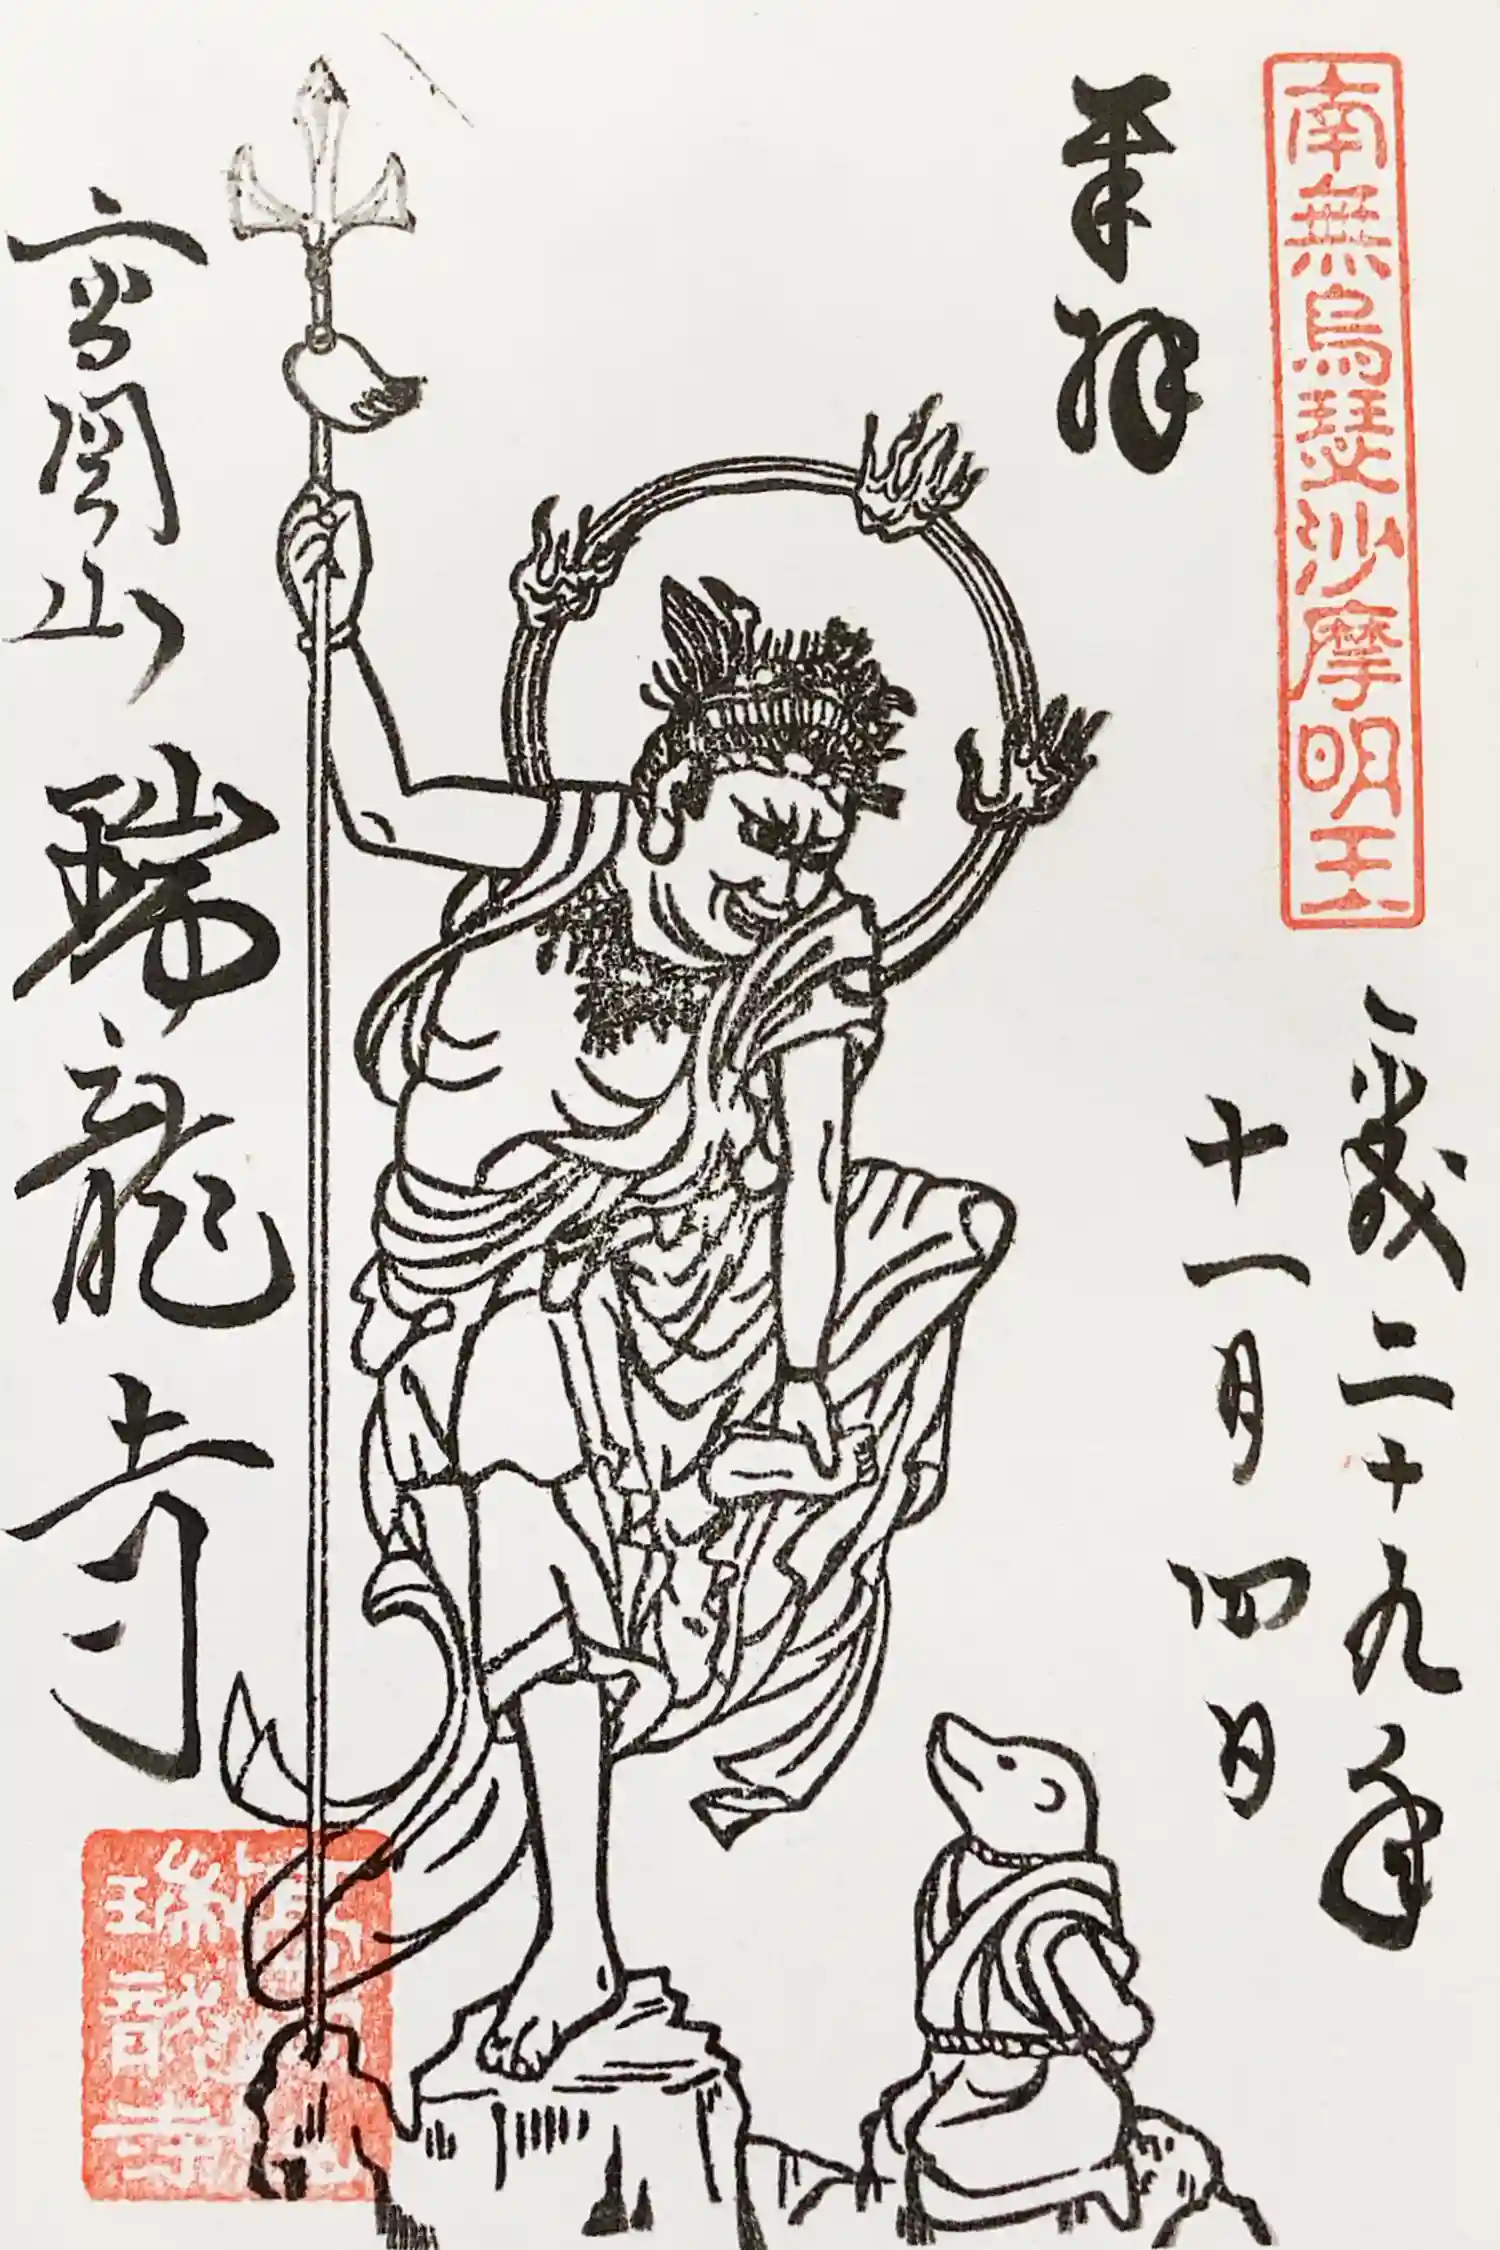 南無烏瑟沙摩明王
奉拝
平成二十九年
十一月四日
高岡山 瑞龍寺
瑞龍寺